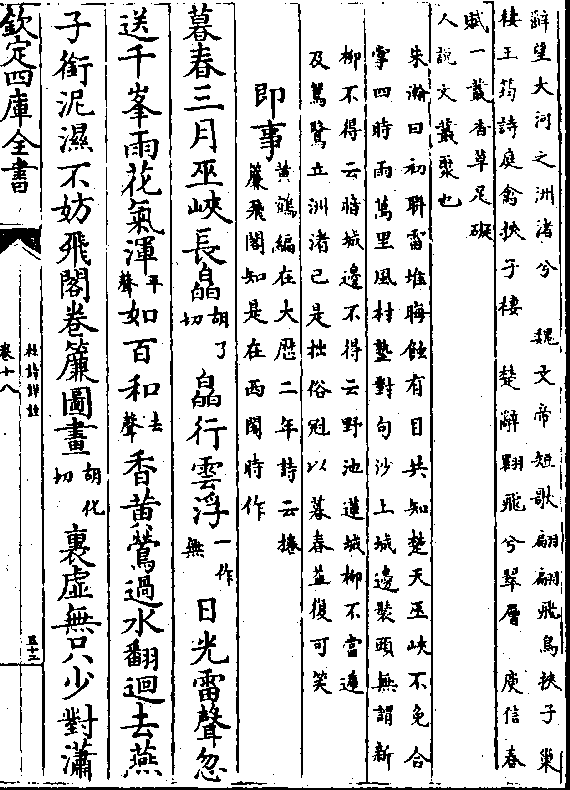 辭望大河之洲渚兮　魏文帝短歌翩翩飛鳥挾子巢
棲王筠詩庭禽挾子棲　楚辭翾飛兮翠層　庾信春
賦一叢香草足礙
人說文叢聚也
朱瀚曰初聨雷堆晦蝕有目共知楚天巫峽不免合
掌四時雨萬里風村塾對句沙上城邊裝頭無謂新
柳不得云暗城邊不得云野池蓮城柳不當連
及鴛鷺立洲渚已是拙俗冠以暮春益復可笑
即事
黄鶴編在大厯二年詩云捲
簾飛閣知是在西閣時作
暮春三月巫峽長皛胡了切皛行雲浮一作無日光雷聲忽
送千峯雨花氣渾平聲如百和去聲香黄鶯過水翻迴去燕
子銜泥濕不妨飛閣卷簾圖畫胡化切裏虛無只少對瀟
欽定四庫全書
杜詩詳註
卷十八
五十二